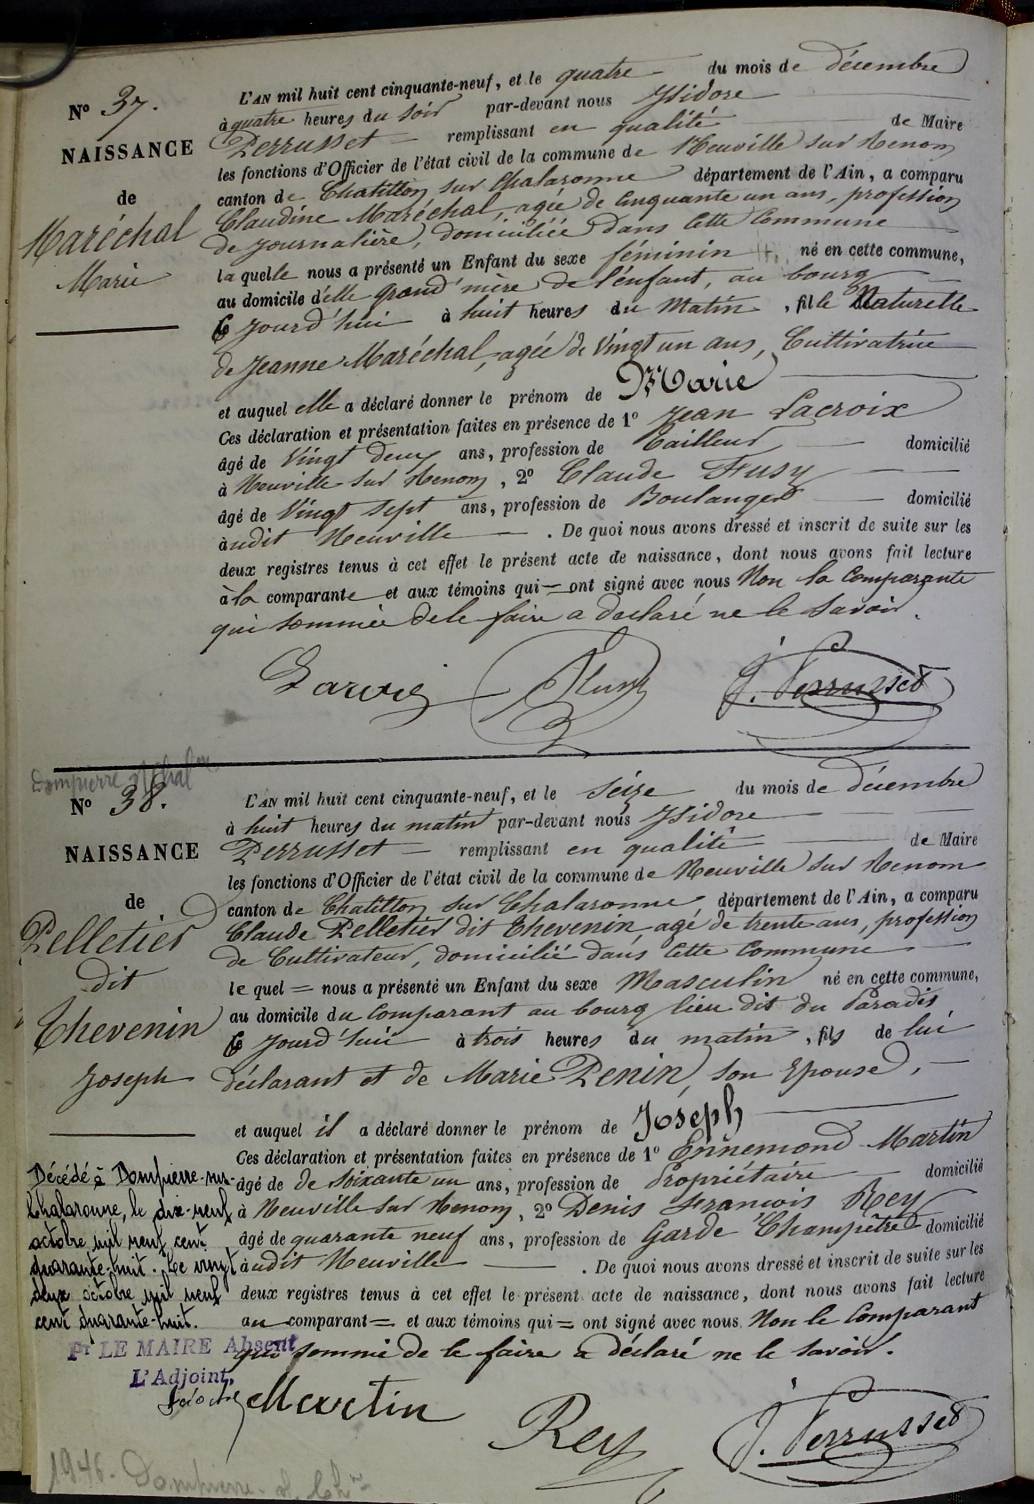 N° 37.
NAISSANCE
de
Maréchal
Marie
L'AN mil huit cent cinquante-neuf, et le quatre du mois de décembre
à quatre heures du soir par-devant nous Isidore
Perrusset remplissant en qualité de Maire
les fonctions d'Officier de l'état civil de la commune de Neuville sur Renom
canton de Chatillon sur Chalaronne département de l'Ain, a comparu
Claudine Maréchal, agée de Cinquante un ans, profession
de journalière, domiciliée dans cette Commune
la quelle nous a présenté un Enfant du sexe féminin né en cette commune,
au domicile d'elle grand'mère de l'enfant, au bourg
Ce jourd'hui à huit heures du Matin, fille Naturelle
de Jeanne Maréchal, agée de Vingt un ans, Cultivatrice
et auquel elle a déclaré donner le prénom de Marie
Ces déclaration et présentation faites en présence de 1° Jean Lacroix
âgé de Vingt deux ans, profession de Tailleur domicilié
à Neuville sur Renom, 2° Claude Fusy
âgé de Vingt sept ans, profession de Boulanger domicilié
audit Neuville. De quoi nous avons dressé et inscrit de suite sur les
deux registres tenus à cet effet le présent acte de naissance, dont nous avons fait lecture
à la comparante et aux témoins qui = ont signé avec nous Non la Comparante
qui sommée de le faire a declaré ne le Savoir.
J. Perrusset
Dompierre s/ Chalne
N° 38.
NAISSANCE
de
Pelletier
dit
Thevenin
Joseph
L'AN mil huit cent cinquante-neuf, et le seize du mois de décembre
à huit heures du matin par-devant nous Isidore
Perrusset remplissant en qualité de Maire
les fonctions d'Officier de l'état civil de la commune de Neuville sur Renom
canton de Chatillon sur Chalaronne département de l'Ain, a comparu
Claude Pelletier dit Thevenin agé de trente ans, profession
de Cultivateur, domicilié dans cette Commune
le quel = nous a présenté un Enfant du sexe Masculin né en cette commune,
au domicile du Comparant au bourg lieu dit du Paradis
Ce jourd'hui à trois heures du matin, fils de lui
déclarant et de Marie Penin, son Epouse,
et auquel il a déclaré donner le prénom de Joseph
Ces déclaration et présentation faites en présence de 1° Ennemond Martin
âgé de de Soixante un ans, profession de Propriétaire domicilié
à Neuville sur Renom, 2° Denis François Rey
âgé de quarante neuf ans, profession de Garde Champêtre domicilié
audit Neuville. De quoi nous avons dressé et inscrit de suite sur les
deux registres tenus à cet effet le présent acte de naissance, dont nous avons fait lecture
au comparant = et aux témoins qui = ont signé avec nous. Non le Comparant
qui sommé de le faire a déclaré ne le savoir.
Décédé à Dompierre-sur-
Chalaronne, le dix-neuf
octobre mil neuf cent
quarante-huit. Le vingt
deux octobre mil neuf
cent quarante-huit.
Pr LE MAIRE Absent
L'Adjoint.
Martin
Rey
J. Perrusset
1946. Dompierre s. Chne